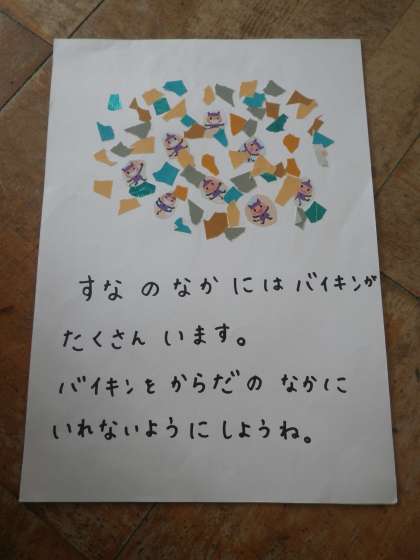 すな の なか に は バイキンが
たくさん います。
バイキンを からだの なかに
いれないように しようね。